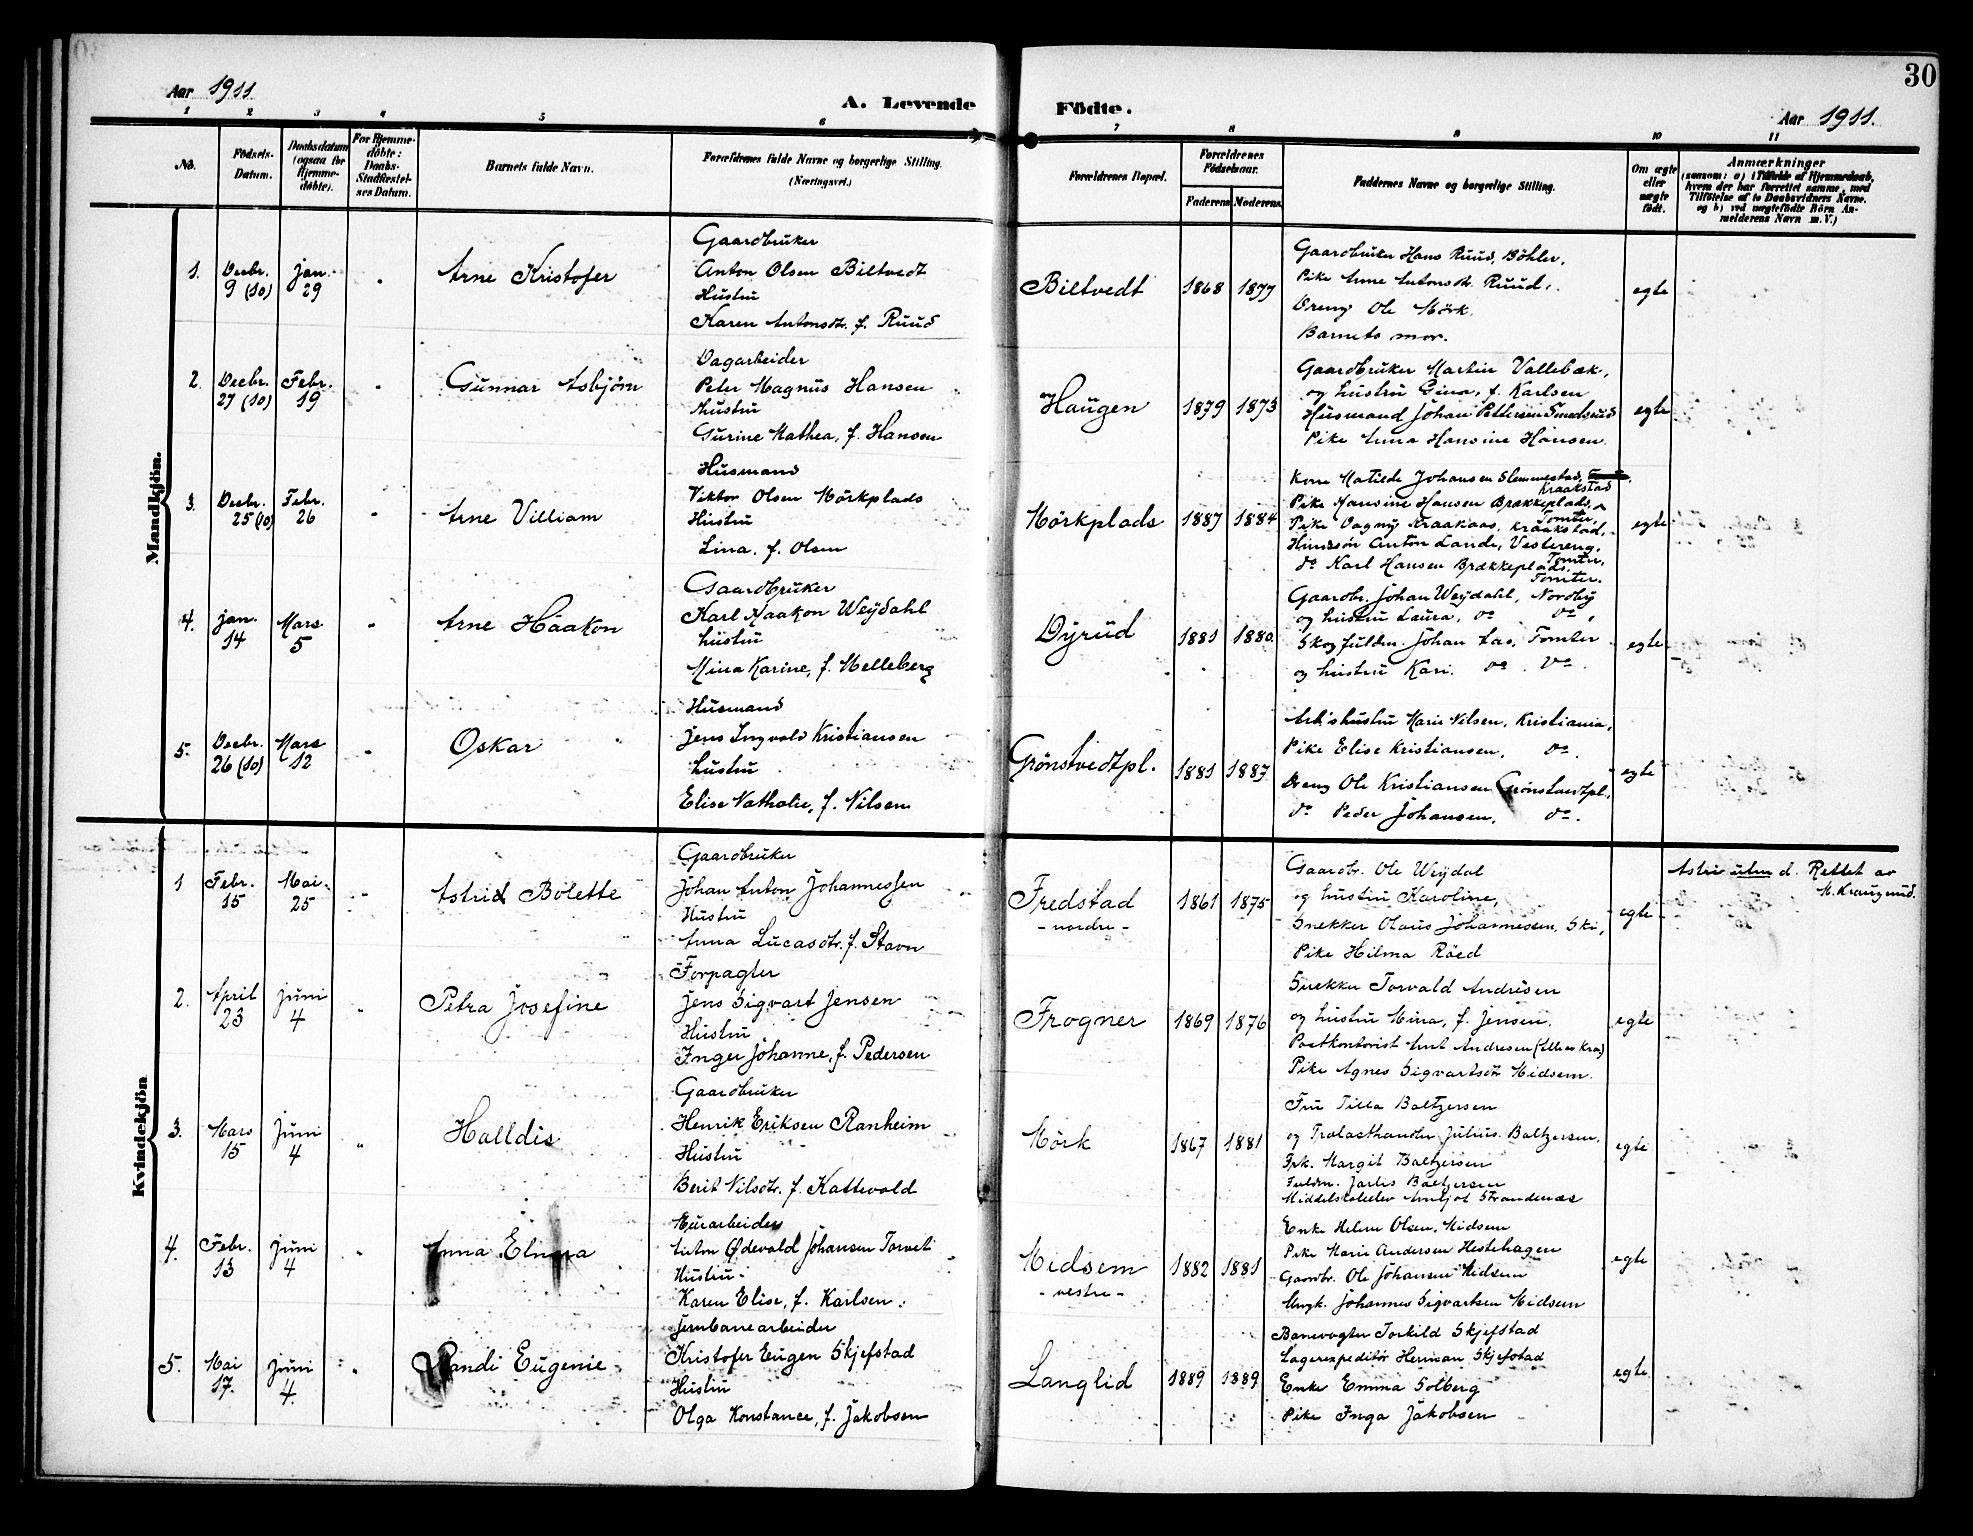 Aar 1911
A. Levende Födte.
Aar 1911.
30
1 2 3 4 5 6 7 8 9 10 11
No.
Födsels-
Datum.
Daabsdatum
(ogsaa for
Hjemme-
döbte).
For Hjemme-
döbte:
Daabs-
Stadfæstel-
ses Datum.
Barnets fulde Navn.
Forældrenes fulde Navne og borgerlige Stilling.
(Næringsvei.)
Forældrenes Bopæl.
Forældrenes
Födselsaar.
Faderens
Moderens
Faddernes Navne og borgerlige Stilling.
Om ægte
eller
uægte
födt.
Anmærkninger
(saasom: a) i Tilfælde af Hjemmedaab,
hvem der har forrettet samme, med
Tilföielse af to Daabsvidners Navne.
og b) ved uægtefödte Börn An-
melderens Navn m. V.)
Mandkjön.
1.
Decbr.
9 (10)
Jan.
29
"
Arne Kristofer
Gaardbruker
Anton Olsen Biltvedt
Hustru
Karen Antonsdtr. f. Ruud
Biltvedt
1868
1877
Gaardbruker Hans Ruud, Böhler,
Pike Anne Antonsdtr. Ruud,
Dreng Ole Mörk.
Barnets mor.
egte
2.
Decbr.
27 (10)
Febr.
19
"
Gunnar Asbjörn
Dagarbeider
Peter Magnus Hansen
Hustru
Gurine Mathea, f. Hansen
Haugen
1879
1873
Gaardbruker Martin Vallebæk,
og hustru Gina, f. Karlsen
Husmand Johan Pettersen Smedsrud
Pike Anna Hansine Hansen.
egte
3.
Decbr.
25 (10)
Febr.
26
"
Arne Villiam
Husmand
Viktor Olsen Mörkplads
Hustru
Lina, f. Olsen
Mörkplads
1887
1884
Kone Matilde Johansen Slemmestad,
Kraakstad
Pike Hansine Hansen Brækkeplads,
Tomter
Pike Dagny Kraakaas, Kraakstad,
Anton Lande, Vestereng,
Tomter,
do Karl Hansen Brækkeplads,
Tomter.
egte
4.
Jan.
14
Mars
5
"
Arne Haakon
Gaardbruker
Karl Haakon Weydahl
hustru
Mina Karine, f. Melleberg
Dyrud
1881
1880
Gaardbr. Johan Weydahl, Nordby
og hustru Laura, do do,
Johan Aas, Tomter
og hustru Kari. do. do.
egte
5.
Decbr.
26 (10)
Mars
12
"
Oskar
Husmand
Jens Ingvald Kristiansen
hustru
Elise Nathalie, f. Nilsen
Grönstvedtpl.
1881
1887
Arb's hustru Marie Nilsen, Kristiania,
Pike Elise Kristiansen, do
Dreng Ole Kristiansen Grönstvedtpl.,
do Peder Johansen, do.
egte
Kvindekjön
1
Febr.
15
Mai
25
"
Astrid Bolette
Gaardbruker
Johan Anton Johannessen
Hustru
Anna Lucasdtr. f. Stavn
Fredstad
- nordre -
1861
1875
Gaardbr. Ole Weydal
og hustru Karoline,
Snekker Olaus Johannessen, Ski,
Pike Hilma Röed
egte
Astri uten d. Rettet av
2.
April
23
Juni
4
"
Petra Josefine
Forpagter
Jens Sigvart Jensen
Hustru
Inger Johanne, f. Pedersen
Frogner
1869
1876
Snekker Torvald Andresen
og hustru Mina, f. Jensen.
Postkontorist Amt Andresen
Pike Agnes Sigvartsdtr Midsem.
egte
3.
Mars
15
Juni
4
"
Halldis
Gaardbruker
Henrik Eriksen Ranheim
Hustru
Berit Nilsdtr. f. Kattevold
Mörk
1867
1881
Fru Tilla Baltzersen
og Trælasthandler Julius Baltzersen,
Frk. Margit Baltzersen
Fuldm. Jarlis Baltzersen
Middelskoleelev Amljot Strandenæs
egte
4.
Febr.
13
Juni
4
"
Anna Elmina
Murarbeider
Anton Ødevald Johansen Torvet
Hustru
Karen Elise, f. Karlsen
Midsem
- vestre -
1882
1881
Enke Helene Olsen, Midsem
Pike Marie Andersen Hestehagen
Gaardbr. Ole Johansen Midsem
Ungk. Johannes Sigvartsen Midsem
egte
5.
Mai
17.
Juni
4.
"
Randi Eugenie
Jernbanearbeider
Kristofer Eugen Skjefstad
Hustru
Olga Konstance, f. Jakobsen
Langlid
1889
1889
Banevogter Torkild Skjefstad
Lagerexpeditör Herman Skjefstad
Enke Emma Solberg
Pike Inga Jakobsen
egte